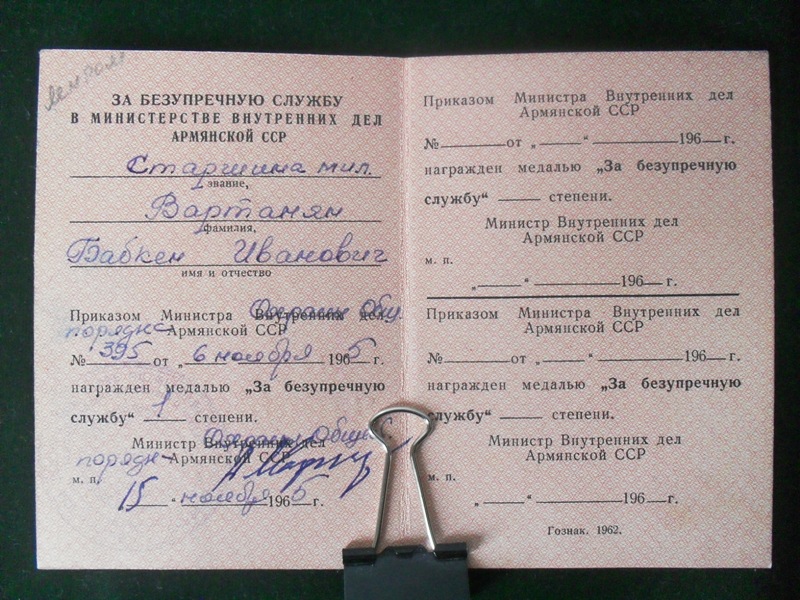 ЗА БЕЗУПРЕЧНУЮ СЛУЖБУ
В МИНИСТЕРСТВЕ ВНУТРЕННИХ ДЕЛ
АРМЯНСКОЙ ССР
Старшина мил.
звание,
Вартанян
фамилия,
Бабкен Иванович
имя и отчество
Приказом Министра Внутренних дел Охраны Общ.
порядка Армянской ССР
№ 395 от „ 6 ноября 1965 г.
награжден медалью „За безупречную
службу“ 1 степени.
Министр Внутренних дел Охраны Общ
порядк Армянской ССР
м. п.
15 “ ноября 1965 г.
Приказом Министра Внутренних дел
Армянской ССР
№ от „ “ 196 г.
награжден медалью „За безупречную
службу“ степени.
Министр Внутренних дел
Армянской ССР
м. п.
„ “ 196 г.
Приказом Министра Внутренних дел
Армянской ССР
№ от „ “ 196 г.
награжден медалью „За безупречную
службу“ степени.
Министр Внутренних дел
Армянской ССР
м. п.
„ “ 196 г.
Гознак. 1962.